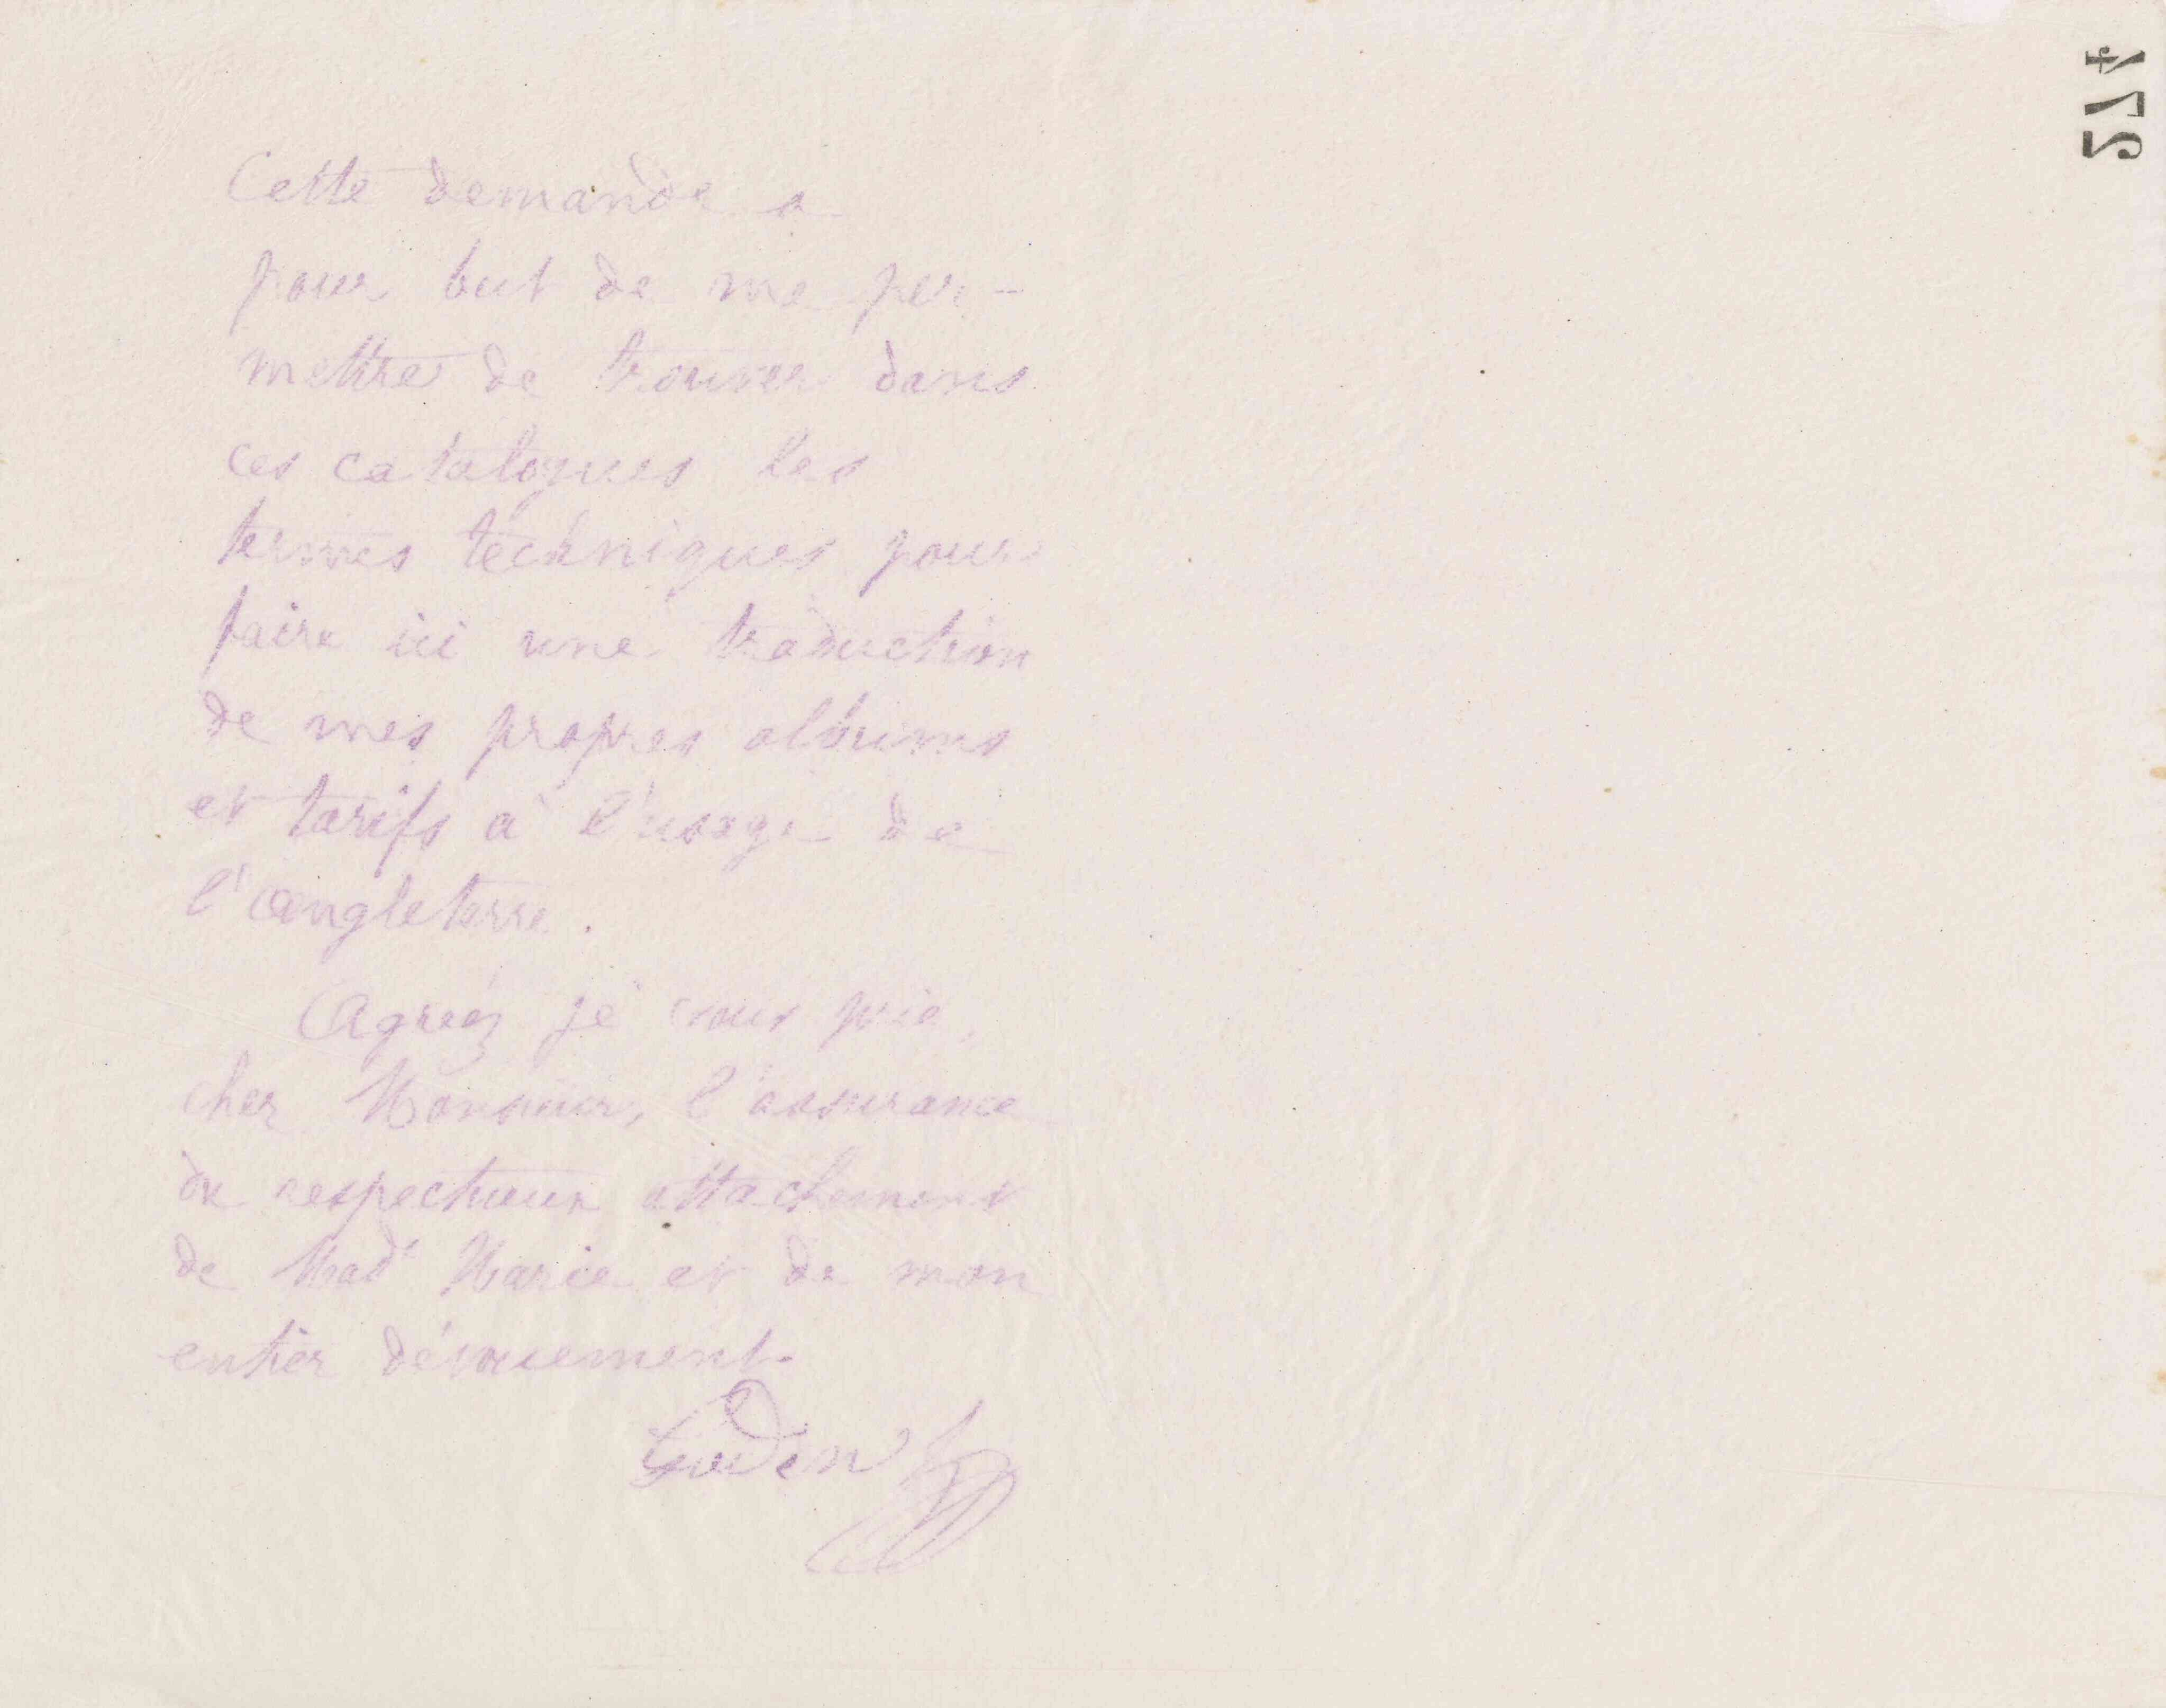 Cette demande a
pour but de me per-
mettre de trouver dans
ces catalogues les
termes techniques pour
faire ici une traduction
de mes propres albums
et tarifs à l'usage de
l'Angleterre.
Agréez je vous prie,
cher Monsieur, l'assurance
du respectueux attachement
de Made Marie et de mon
entier dévouement.
Godin